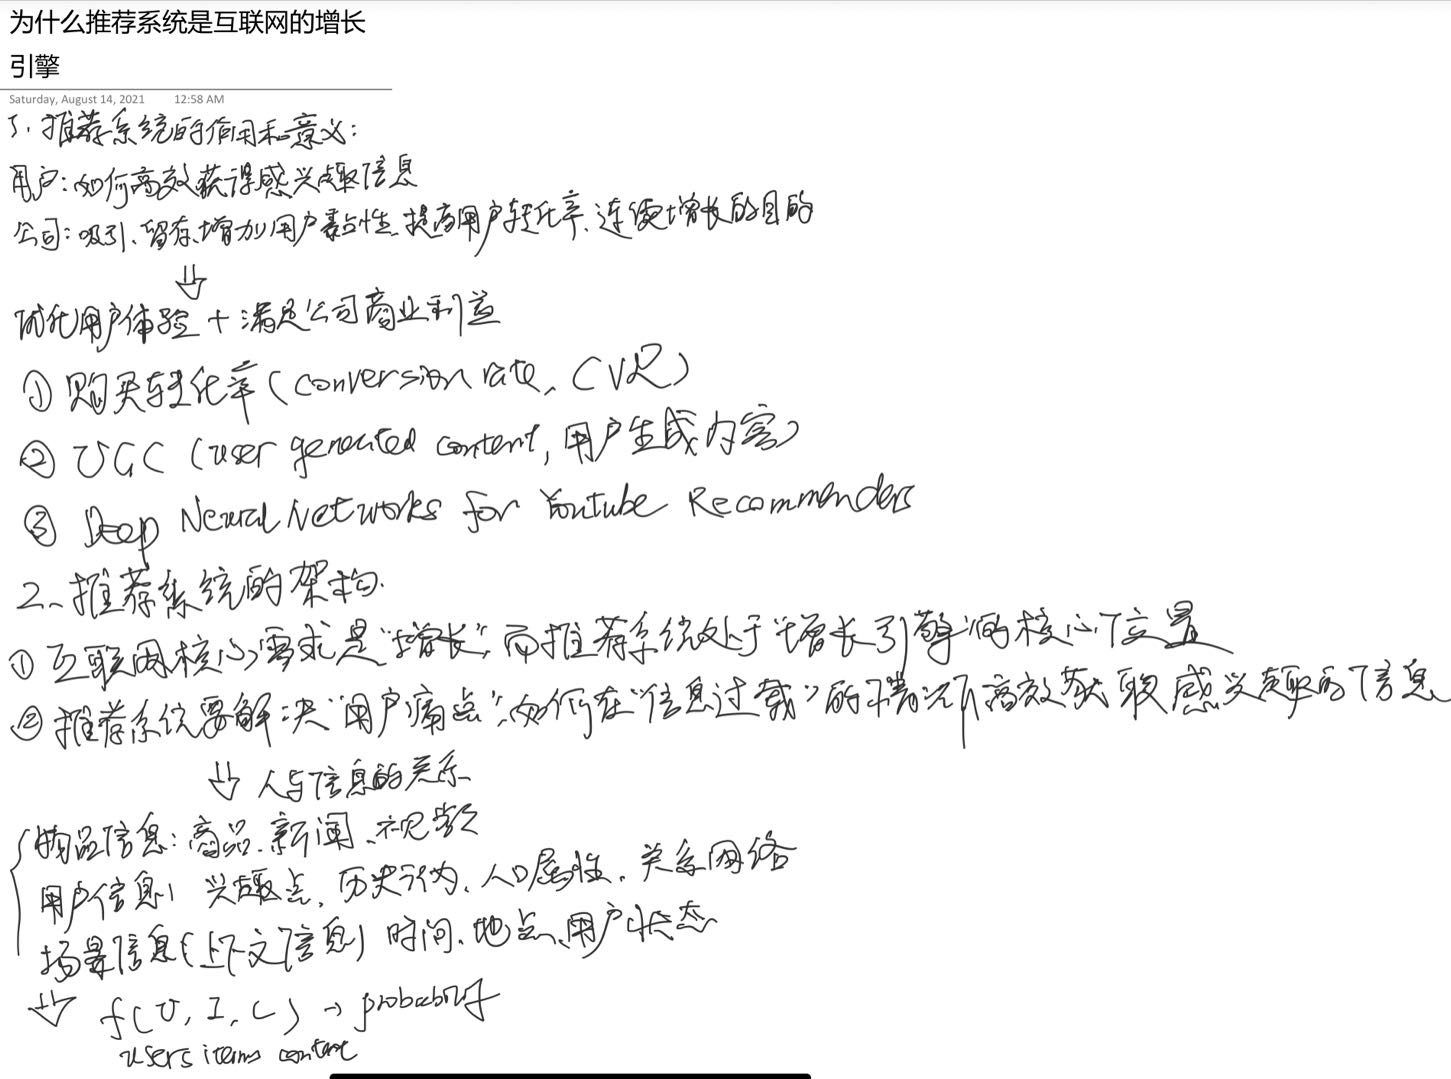 为什么推荐系统是互联网的增长
引擎
Saturday, August 14, 2021 12:58 AM
1. 推荐系统的作用和意义:
用户:如何高效获得感兴趣信息
公司:吸引、留存、增加用户黏性、提高用户转化率、连续增长的目的
⇓
优化用户体验 + 满足公司商业利益
① 购买转化率(conversion rate, CVR)
② UGC (user generated content, 用户生成内容)
③ Deep Neural Networks for Youtube Recommenders
2、推荐系统的架构.
① 互联网核心需求是“增长”,而推荐系统处于“增长引擎”的核心位置
② 推荐系统要解决“用户痛点”,如何在“信息过载”的情况下高效获取感兴趣的信息
⇓ 人与信息的关系
物品信息:商品、新闻、视频
用户信息: 兴趣点、历史行为、人口属性、关系网络
场景信息(上下文信息) 时间、地点、用户状态
⇓ f(U, I, C) → probability
users items content